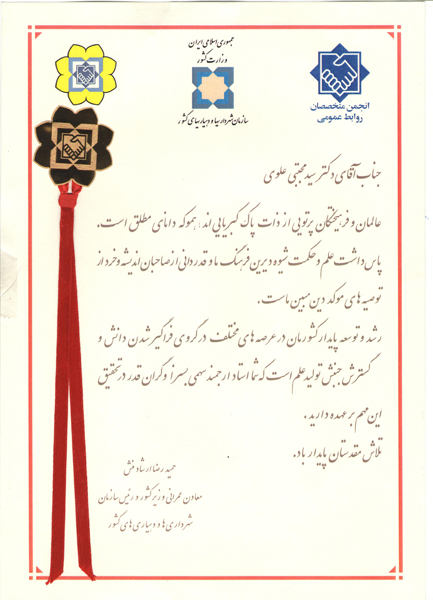 جمهوری اسلامی ایران
وزارت کشور
سازمان شهرداریها و دهیاریهای کشور
انجمن متخصصان
روابط عمومی
جناب آقای دکتر سید مجتبی علوی
عالمان و فرهیختگان پرتویی از ذات پاک کبریایی اند؛ همو که دانای مطلق است.
پاس داشت علم و حکمت شیوه دیرین فرهنگ ما و قدردانی از صاحبان اندیشه و خرد از
توصیه های موکد دین مبین ماست.
رشد و توسعه پایدار کشورمان در عرصه های مختلف در گروی فراگیر شدن دانش و
گسترش جنبش تولید علم است که شما استاد ارجمند سهمی بسزا و گران قدر در تحقیق
این مهم بر عهده دارید.
تلاش مقدستان پایدار باد.
حمید رضا ارشاد منش
معاون عمرانی وزیر کشور و رئیس سازمان
شهرداری ها و دهیاری های کشور